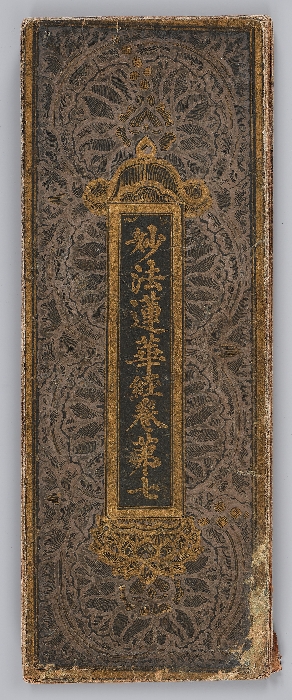 妙法蓮華經卷第七